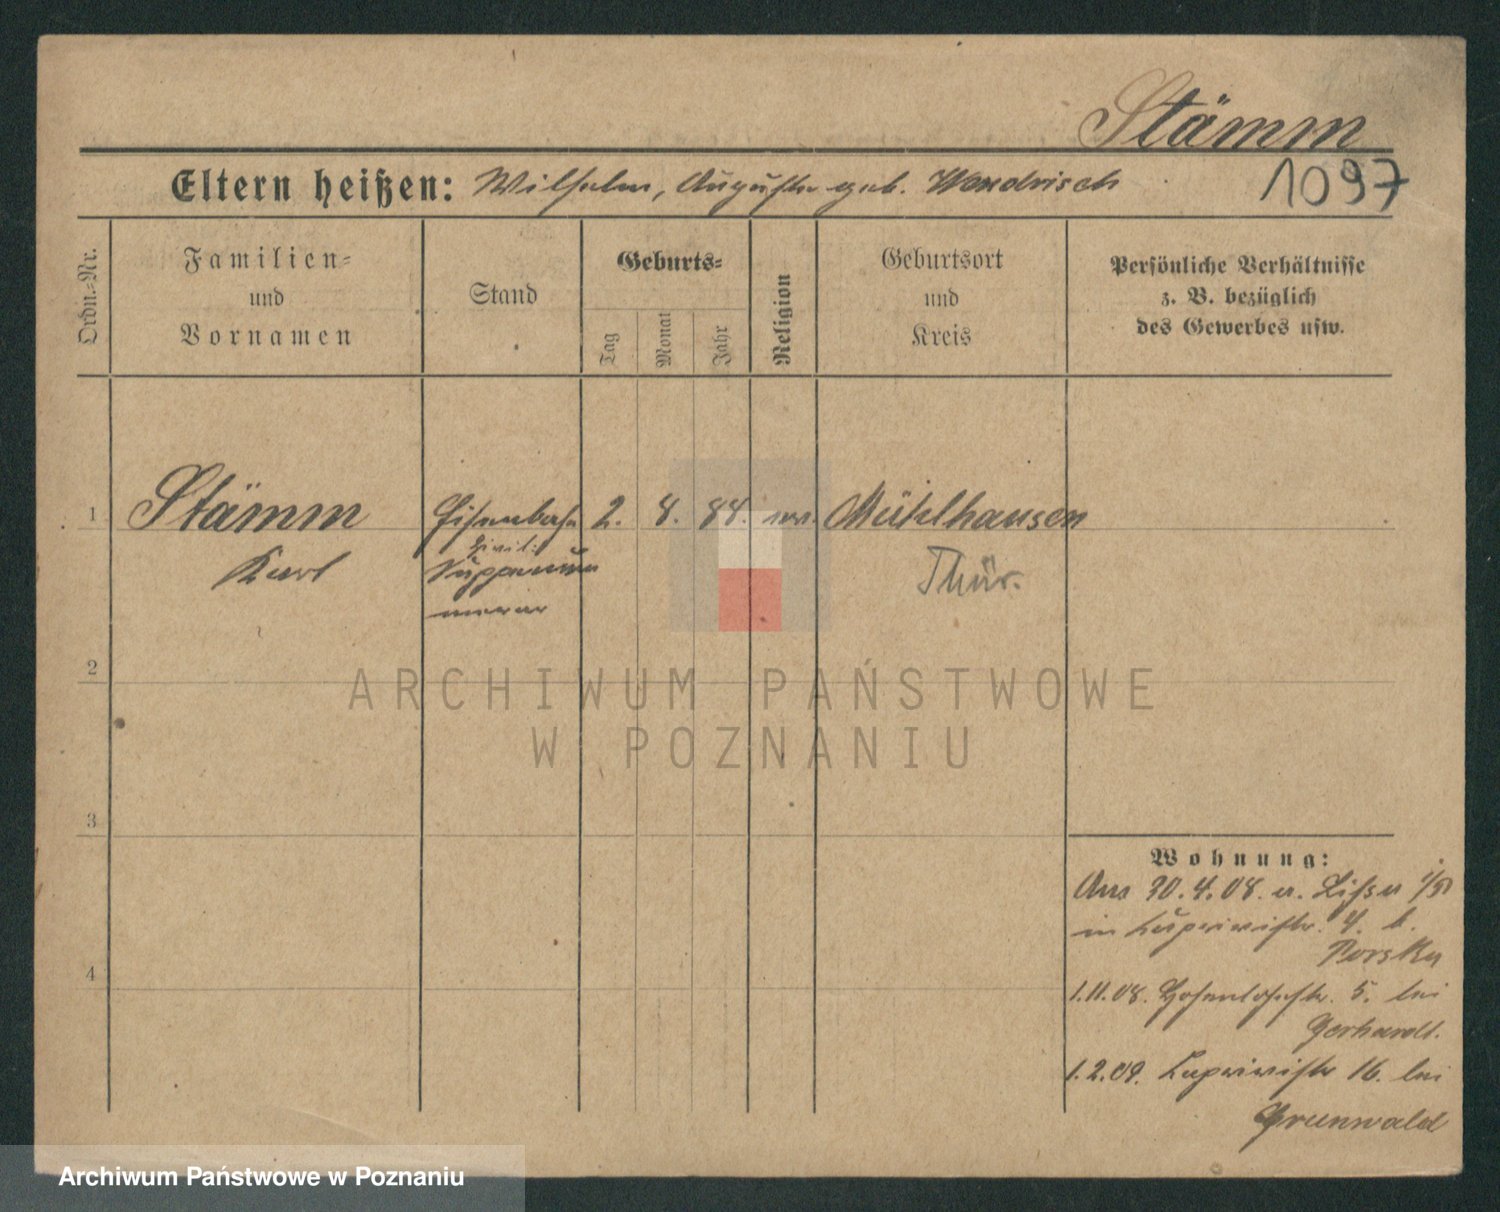 Stämm
Eltern heißen: Wilhelm, Auguste geb. Wendrisch
1097
Ordn.-Nr.
Familien-
und
Vornamen
Stand
Geburts-
Tag
Monat
Jahr
Religion
Geburtsort
und
Kreis
Persönliche Verhältnisse
z. B. bezüglich
des Gewerbes usw.
1 Stämm Eisenbahn 2. 8. 88. ev. Mühlhausen
Civil:
Karl Supernu Thür.
merar
2
ARCHIWUM PAŃSTWOWE
W POZNANIU
3
Wohnung:
30.4.08. a. Lissa i/P
in 4. b.
4
1.11.08. Hohenlohestr. 5. bei
Gerhardt.
1.2.09. 16. bei
Grunwald
Archiwum Państwowe w Poznaniu